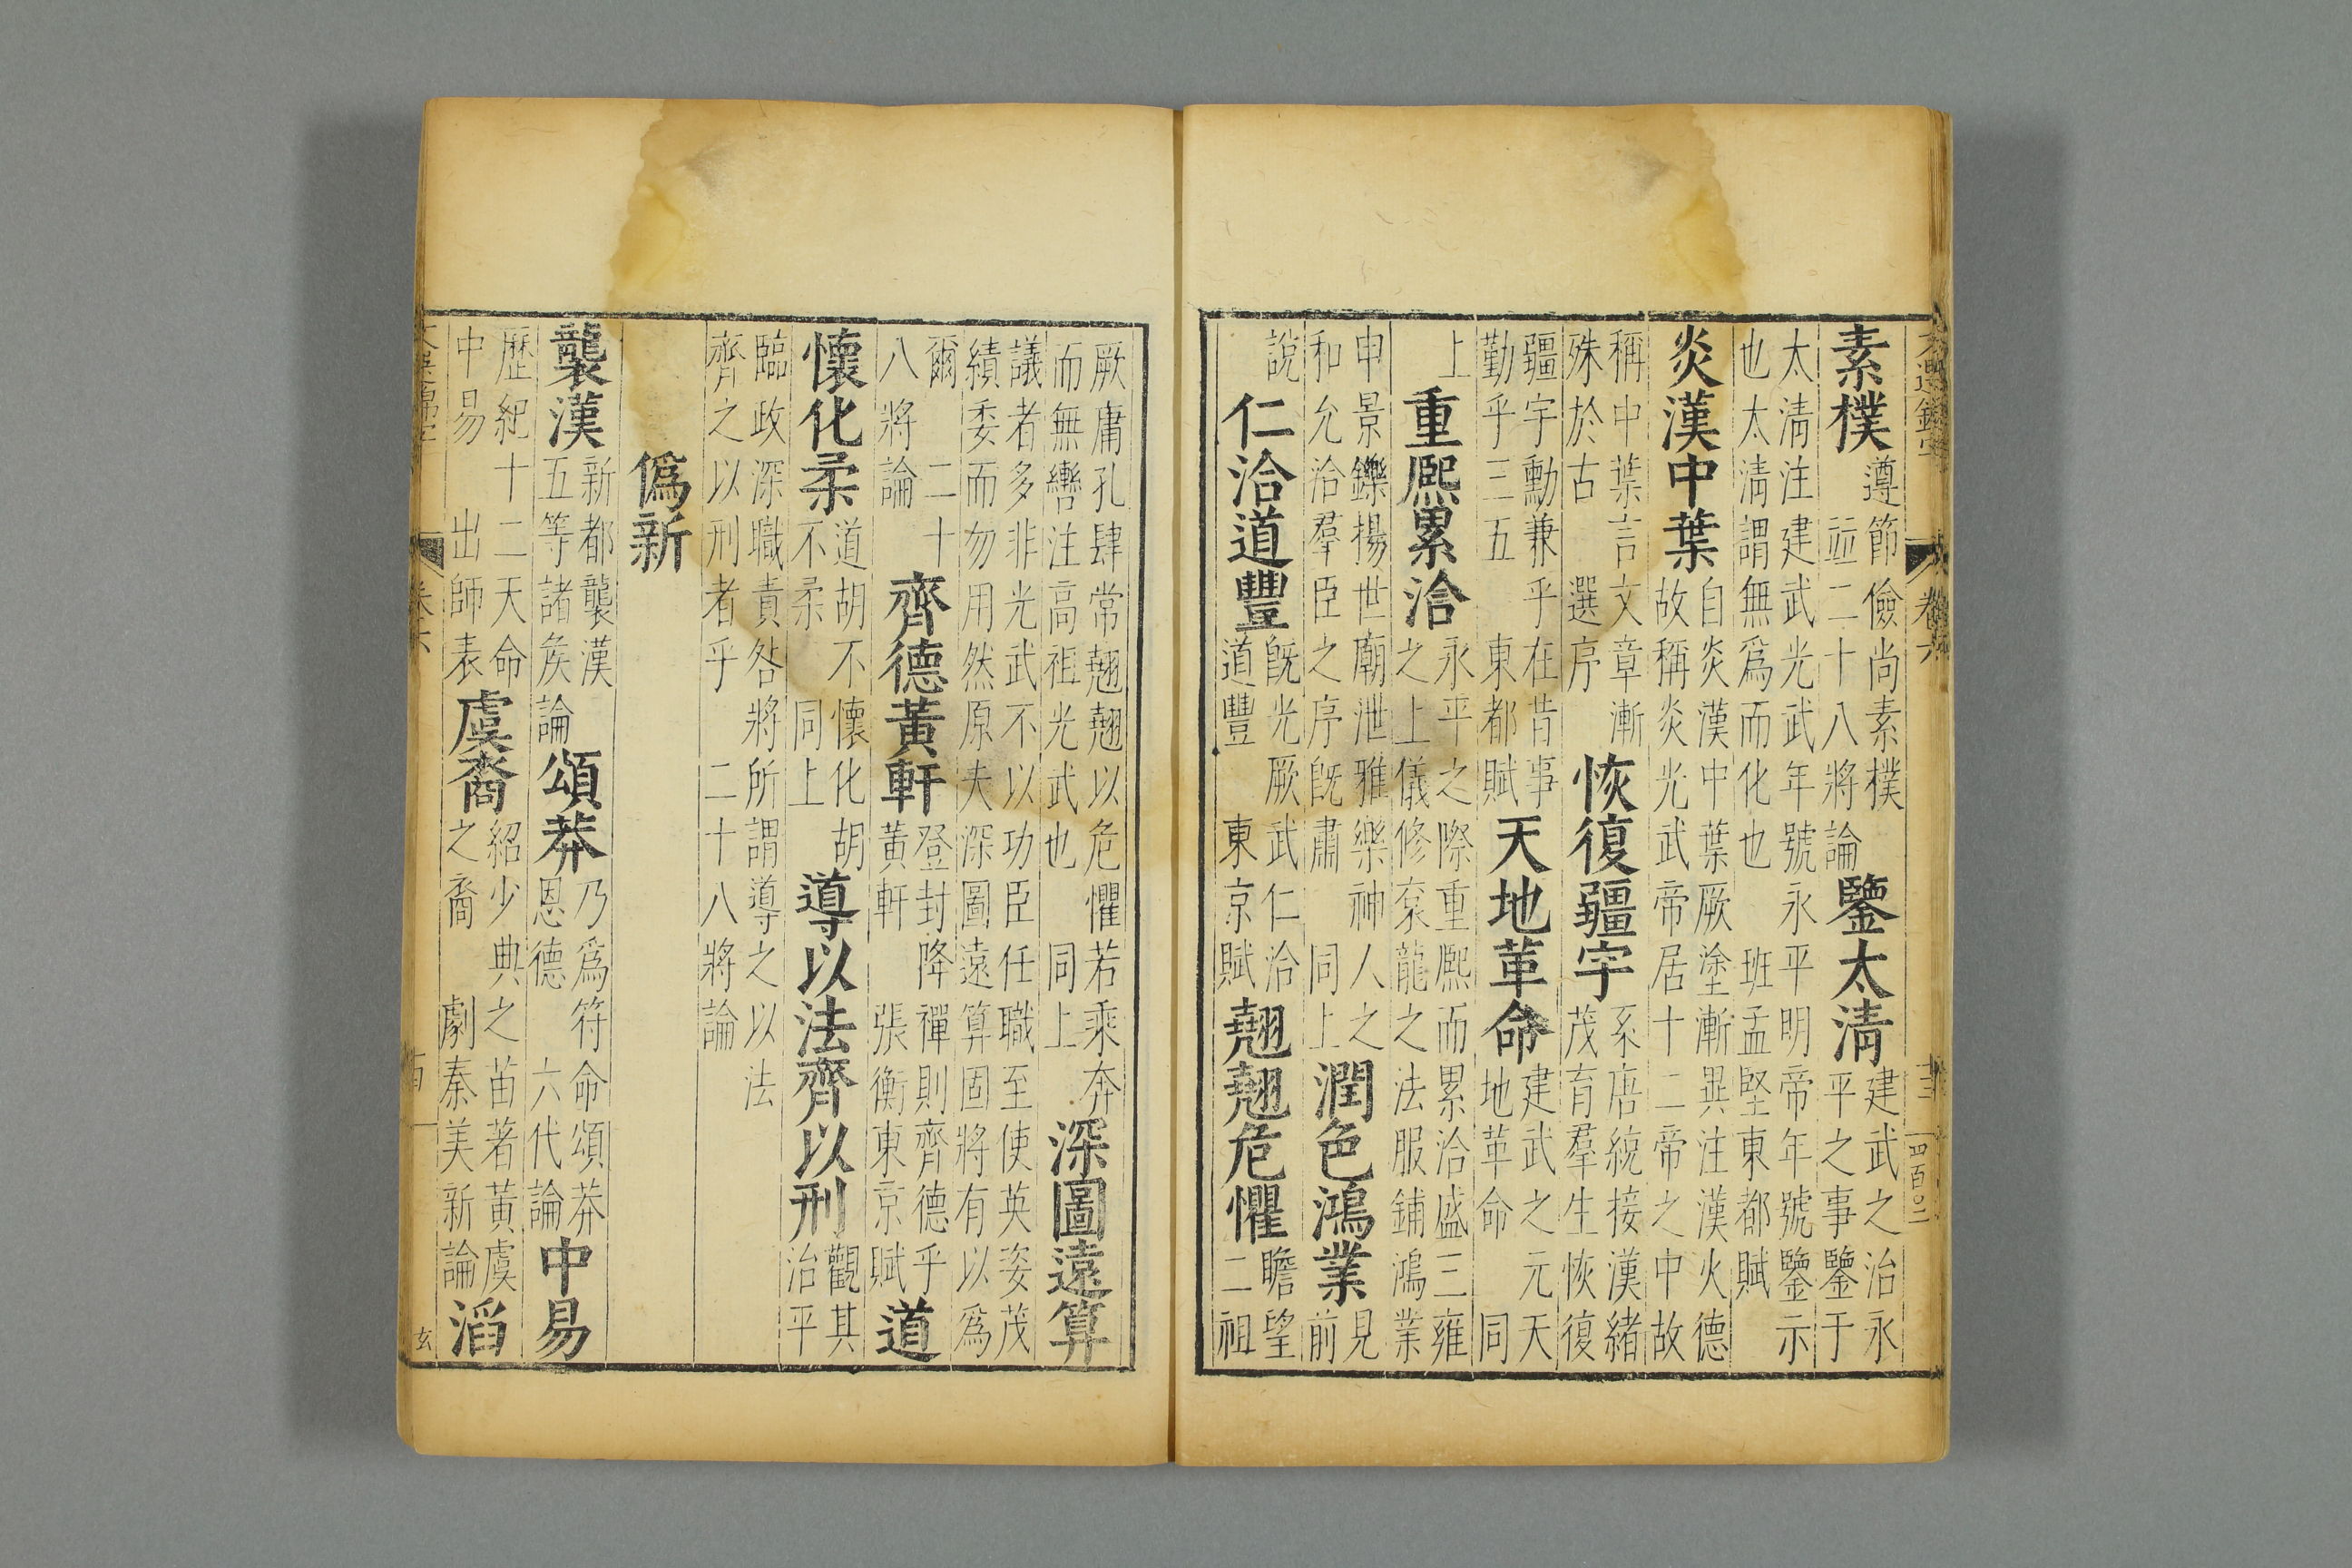 文選錦字 卷六 十三 四百〇二
素樸 遵節儉尚素樸 竝二十八將論 鑒太清 建武之治永平之事鑒于
太清注建武光武年號永平明帝年號鑒示
也太清謂無爲而化也 班孟堅東都賦
炎漢中葉 自炎漢中葉厥塗漸異注漢火德
故稱炎光武帝居十二帝之中故
稱中葉言文章漸殊於古 選序 恢復疆宇 系唐統接漢緒茂育羣生恢復
疆宇勳兼乎在昔事勤乎三五 東都賦 天地革命 建武之元天地革命 同
上 重熙累洽 永平之際重熙而累洽盛三雍之上儀修衮龍之法服鋪鴻業
申景鑠揚世廟泄雅樂神人之和允洽羣臣之序旣肅 同上 潤色鴻業 見前
說 仁洽道豐 旣光厥武仁洽道豐 東京賦 翹翹危懼 瞻望二祖
厥庸孔肆常翹翹以危懼若乘奔而無轡注高祖光武也 同上 深圖遠算
議者多非光武不以功臣任職至使英姿茂
績委而勿用然原夫深圖遠算固將有以爲
爾 二十八將論 齊德黃軒 登封降禪則齊德乎黃軒 張衡東京賦 道
懷化柔 道胡不懷化胡不柔 同上 導以法齊以刑 觀其治平
臨政深職責咎將所謂導之以法
齊之以刑者乎 二十八將論
僞新
襲漢 新都襲漢五等諸侯論 頌莽 乃爲符命頌莽恩德 六代論 中易
歷紀十二天命中易 出師表 虞裔 紹少典之苗著黃虞之裔 劇秦美新論 滔
卷六
玄